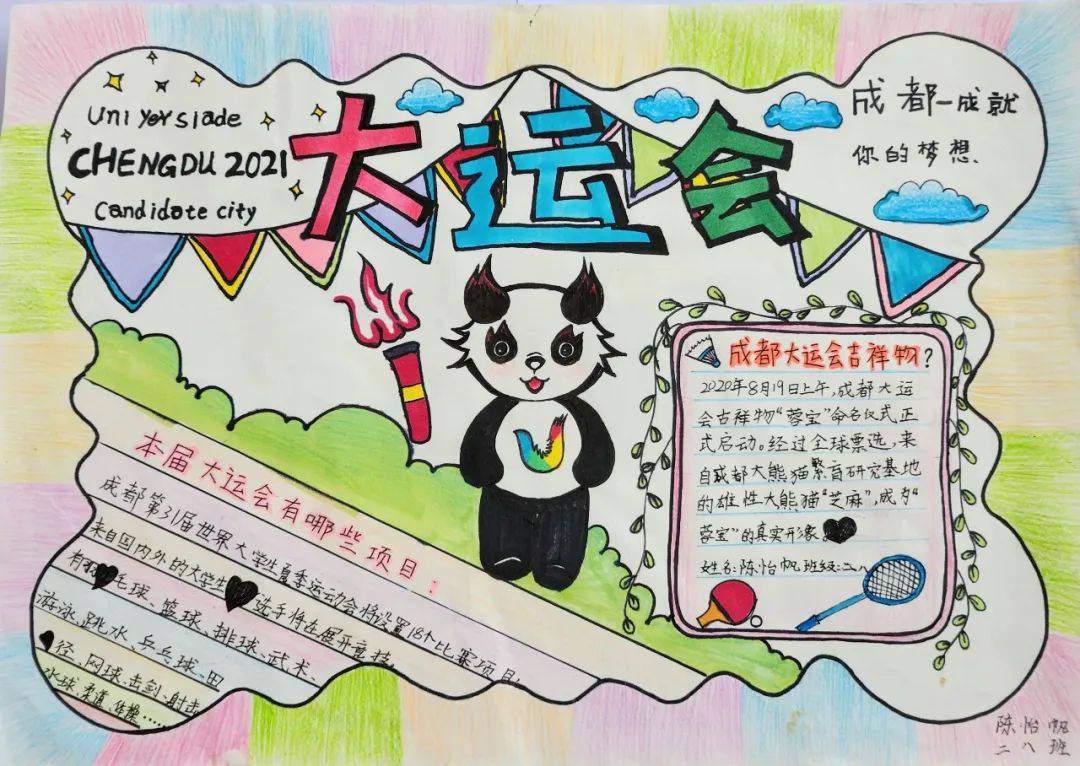 Uni Yersiade
CHENGDU 2021
Candidate city
大运会
成都一成就
你的梦想、
成都大运会吉祥物?
2020年8月19日上午,成都大运
会吉祥物“蓉宝”命名仪式正
式启动。经过全球票选,来
自成都大熊猫繁育研究基地
的雄性大熊猫“芝麻”,成为“
蓉宝”的真实形象。
姓名:陈怡帆 班级:二八
本届大运会有哪些项目:
成都第31届世界大学生夏季运动会将设置18个比赛项目,
来自国内外的大学生选手将在展开竞技,
有羽毛球、篮球、排球、武术、
游泳、跳水、乒乓球、田
径、网球、击剑、射击
水球、柔道、体操……
陈怡帆
二八班